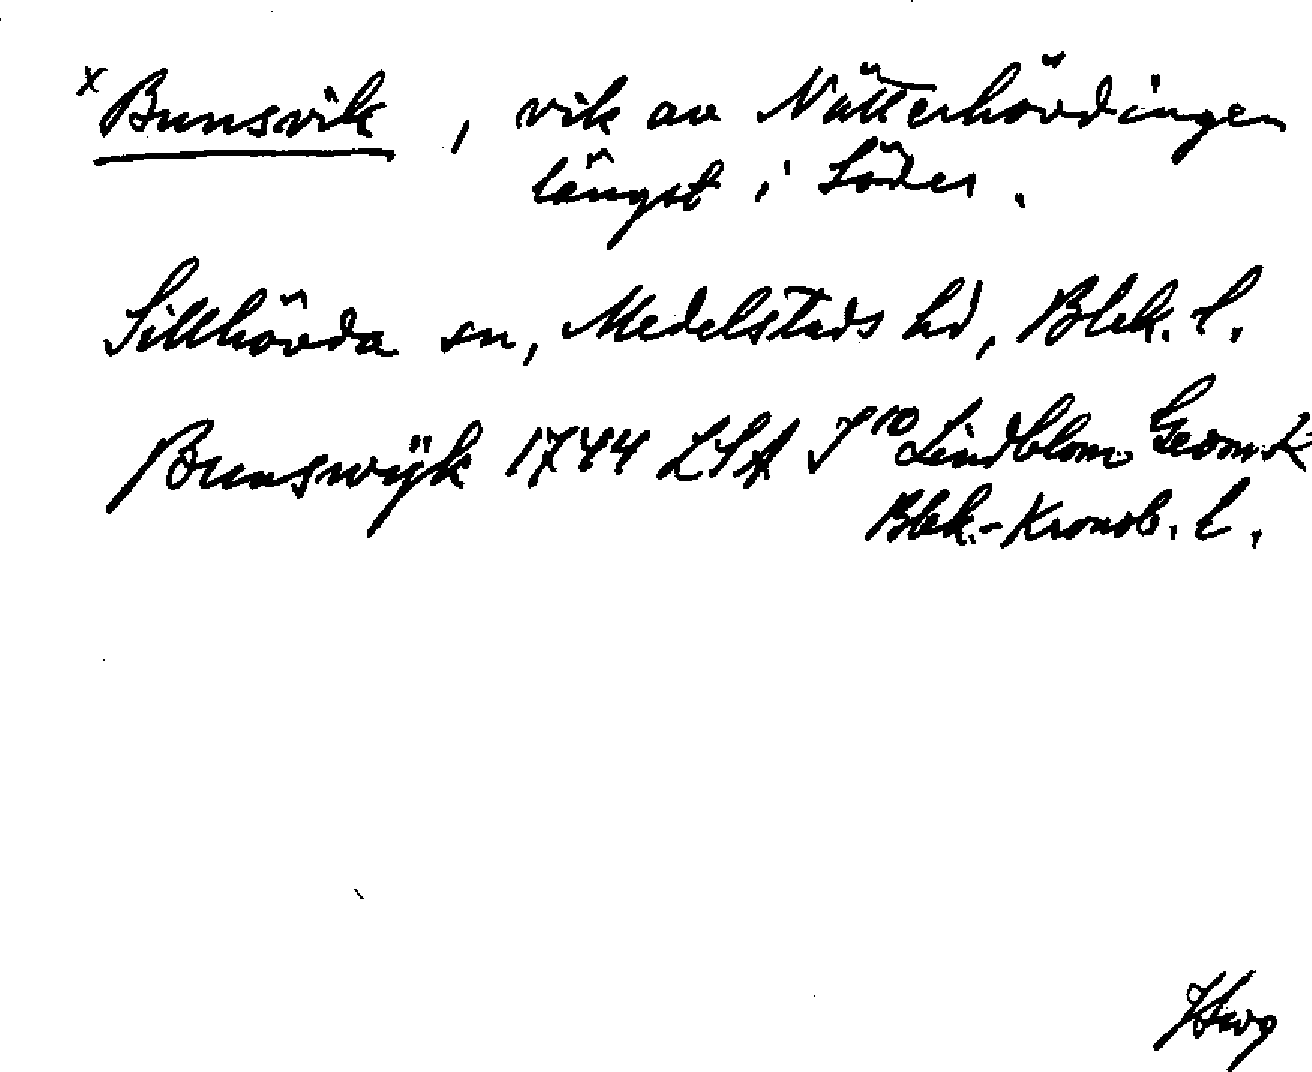 x Bunsvik, vik av Nätterhövdingen
längst i Söder.
Sillhövda sn, Medelstads hd, Blek. l.
Bunswÿk 1744 LSA J 10 Lindblom Geom. K
Blek.-Kronob. l.